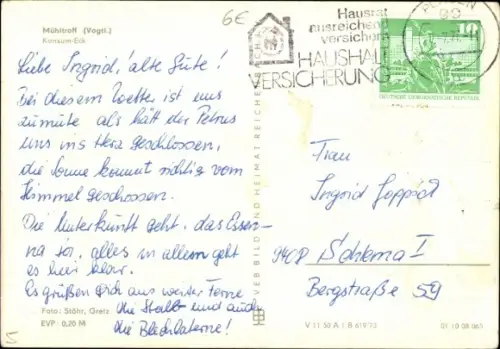 Mühltroff (Vogtl.)
Konsum-Eck
6€
Hausrat
ausreichend
versichern
HAUSHALT
VERSICHERUNG
10
DEUTSCHE DEMOKRATISCHE REPUBLIK
Liebe Ingrid, alte Güte!
Bei diesem Wetter ist uns
zumute als hätt der Petrus
uns ins Herz geschlossen,
die Sonne kommt richtig vom
Himmel geschossen.
Die Unterkunft geht, das Essen-
na ja, alles in allem geht
es hier klar.
Es grüßen Dich aus weiter Ferne
die und auch
die Blechlaterne!
Foto: Stöhr, Greiz
EVP: 0,20 M
VEB BILD UND HEIMAT REICHENBACH
V 11 50 A 1 B 619/73
01 10 08 063
Frau
Ingrid
9408 Schlema I
Bergstraße 59